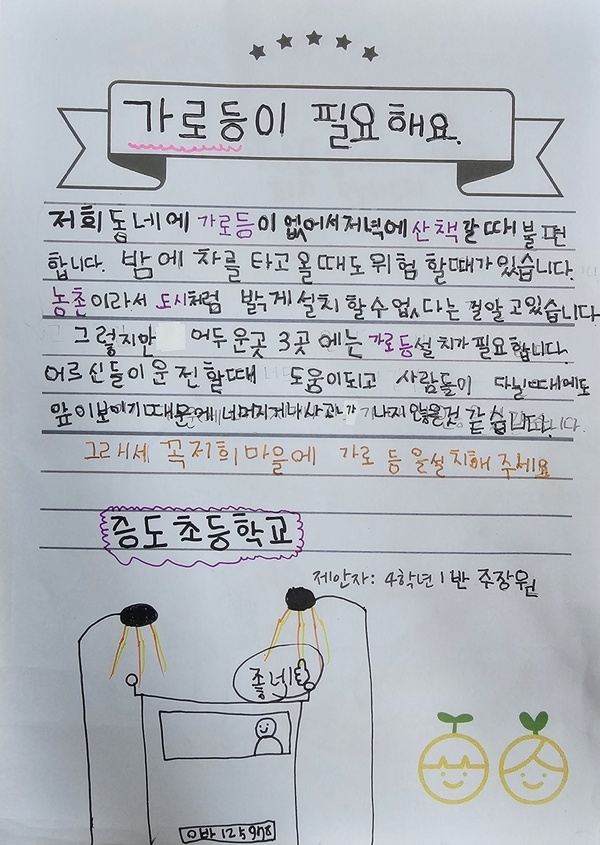 가로등이 필요해요.
저희 동네에 가로등이 없어서 저녁에 산책할 때 불편
합니다. 밤에 차를 타고 올 때도 위험 할때가 있습니다.
농촌이라서 도시처럼 밝게 설치 할 수 없다는 걸 알고 있습니다
그렇지만 어두운곳 3곳 에는 가로등 설치가 필요합니다.
어르신들이 운전할때 도움이되고 사람들이 다닐때에도
앞이보이기때문에 넘어지거나 사고가 나지 않을것 같습니다.
그래서 꼭 저희 마을에 가로등을설치해 주세요
증도초등학교
제안자: 4학년 1반 주장원
좋네